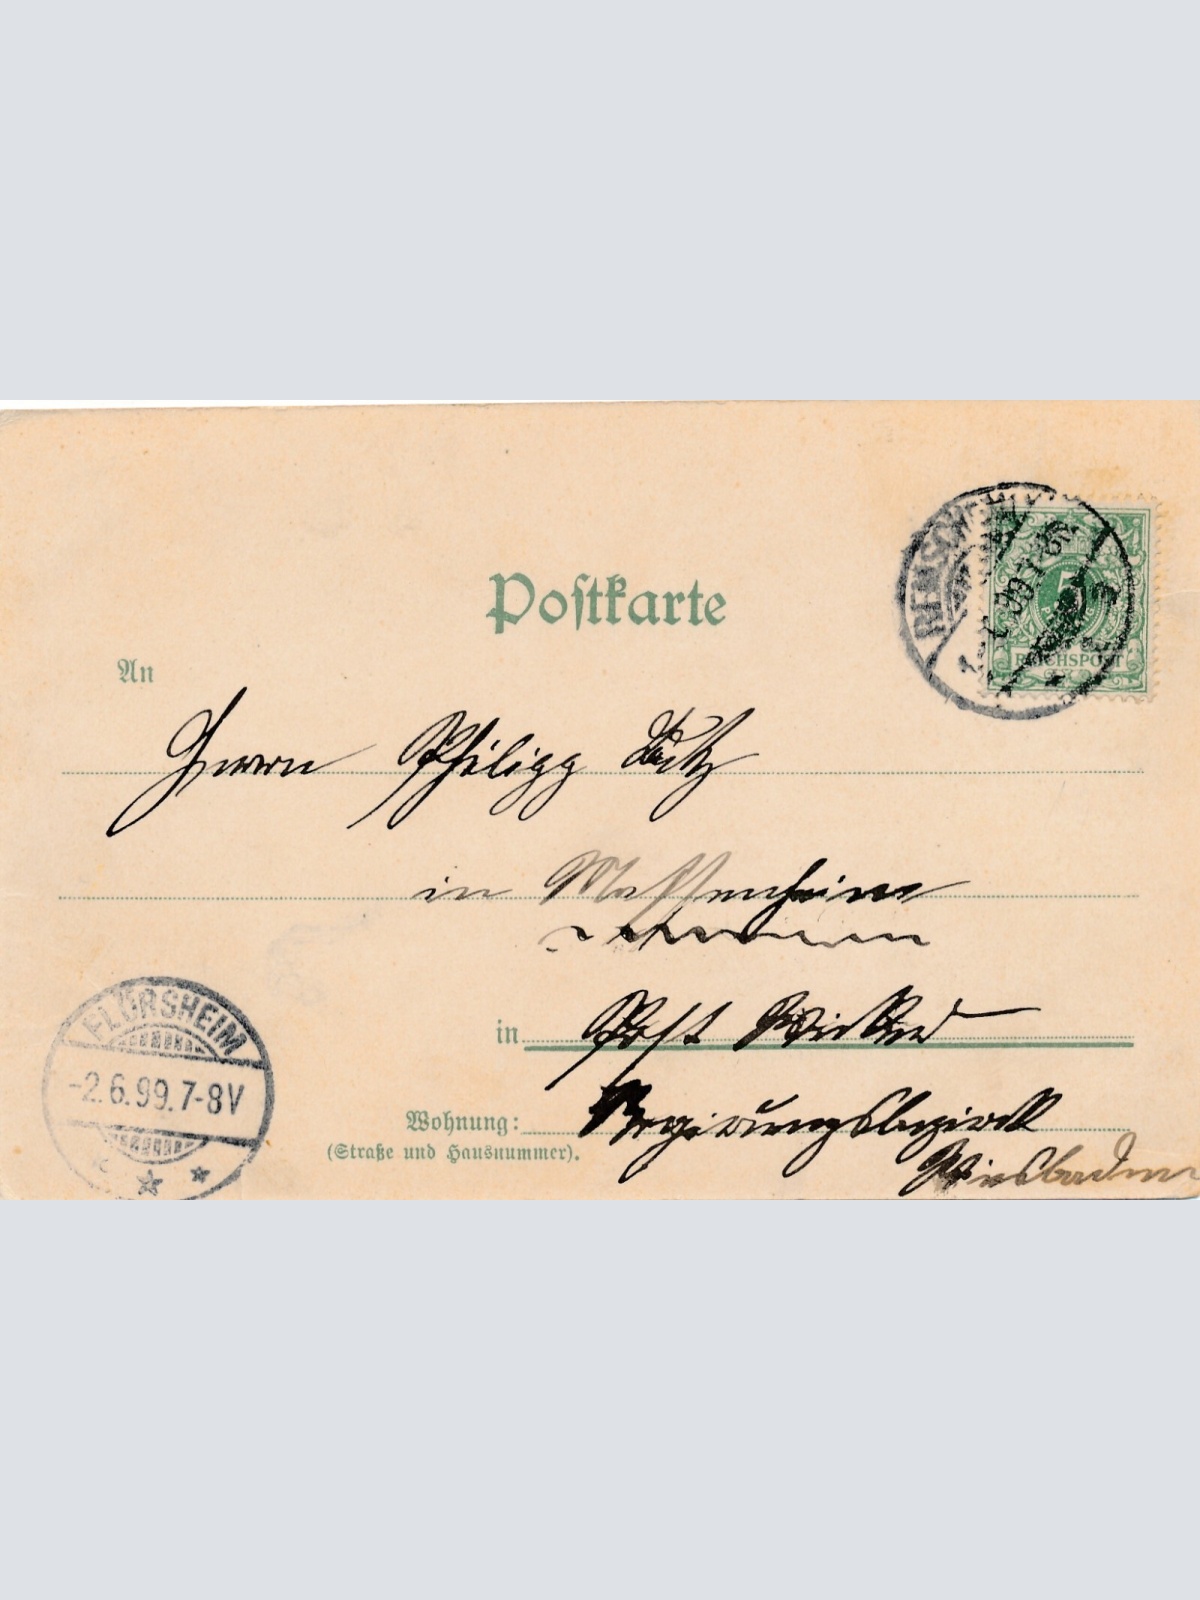 Postkarte
REMSCHEID
5
REICHSPOST
An
Herrn Philipp
in Massenheim
in Post Wicker
Wohnung: Regierungsbezirk
(Straße und Hausnummer).
Wiesbaden
FLÖRSHEIM
-2.6.99.7-8V